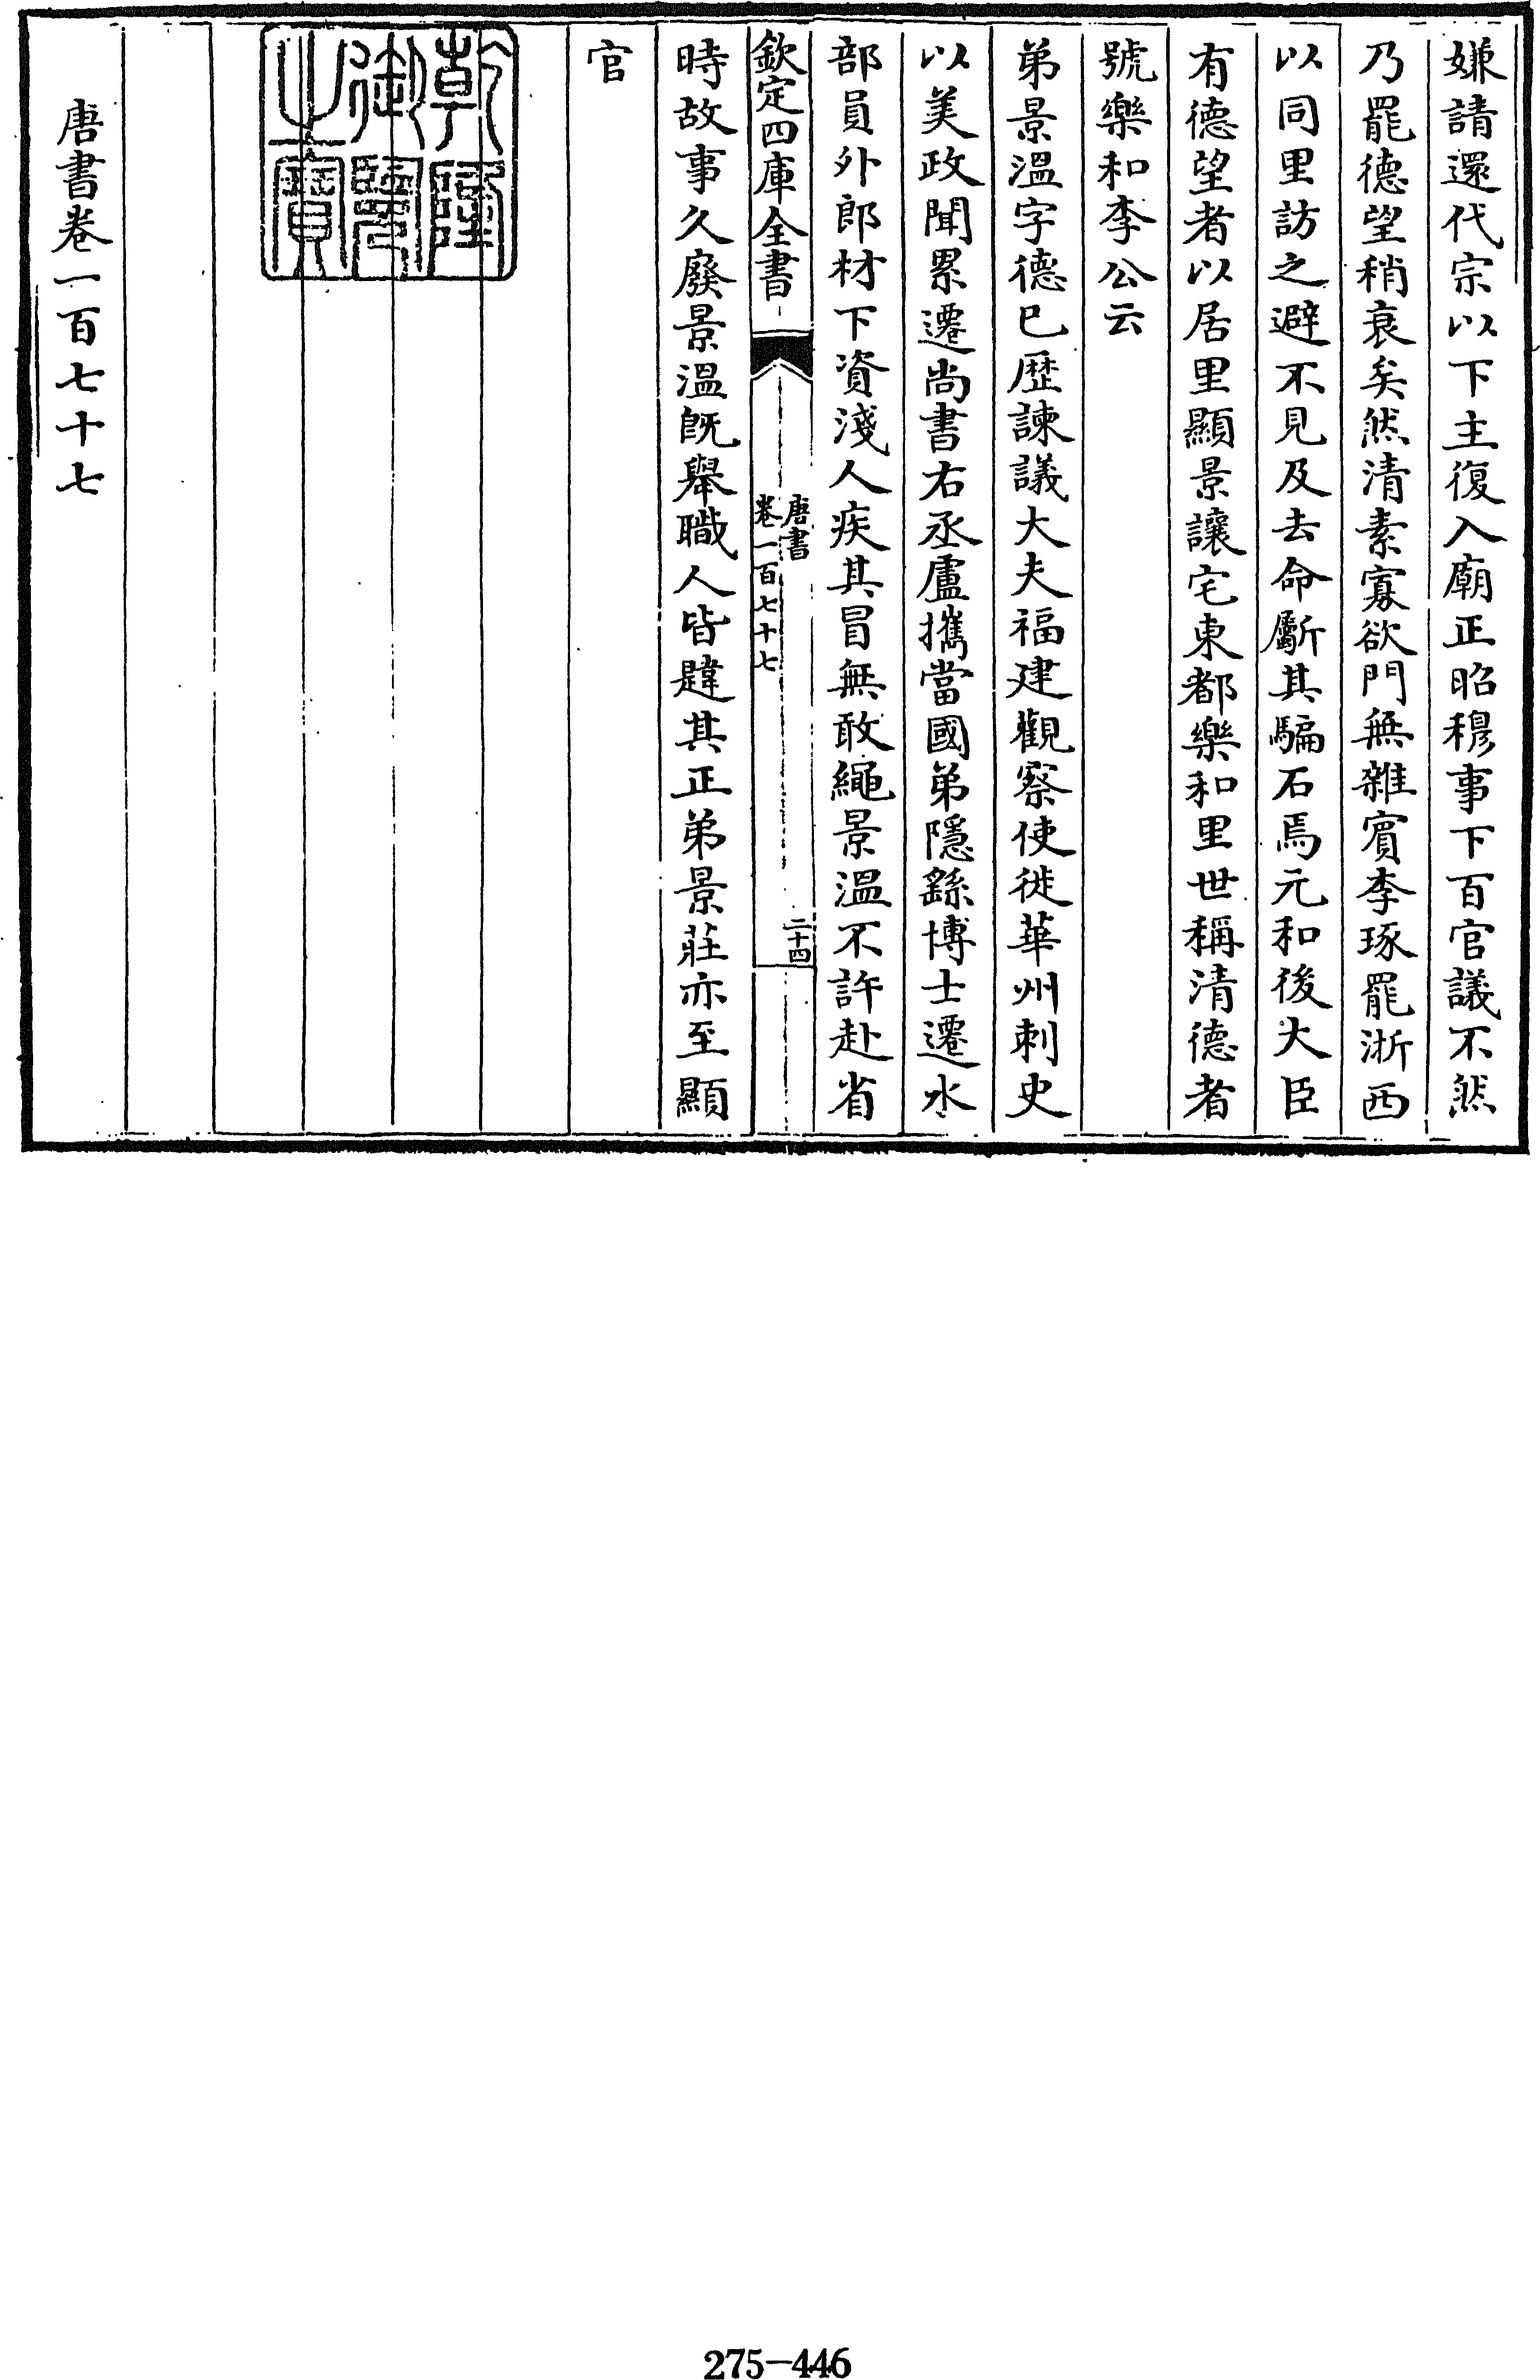 嫌請還代宗以下主復入廟正昭穆事下百官議不然
乃罷德望稍衰矣然清素寡欲門無雜賓李琢罷浙西
以同里訪之避不見及去命斸其騙石焉元和後大臣
有德望者以居里顯景讓宅東都樂和里世稱清德者
號樂和李公云
弟景溫字德已歷諫議大夫福建觀察使徙華州刺史
以美政聞累遷尚書右丞盧攜當國弟隱繇博士遷水
部員外郎材下資淺人疾其冒無敢繩景溫不許赴省
欽定四庫全書
唐書
卷一百七十七
二十四
時故事久廢景溫旣舉職人皆韙其正弟景莊亦至顯
官
乾隆御覽之寶
唐書卷一百七十七
275-446